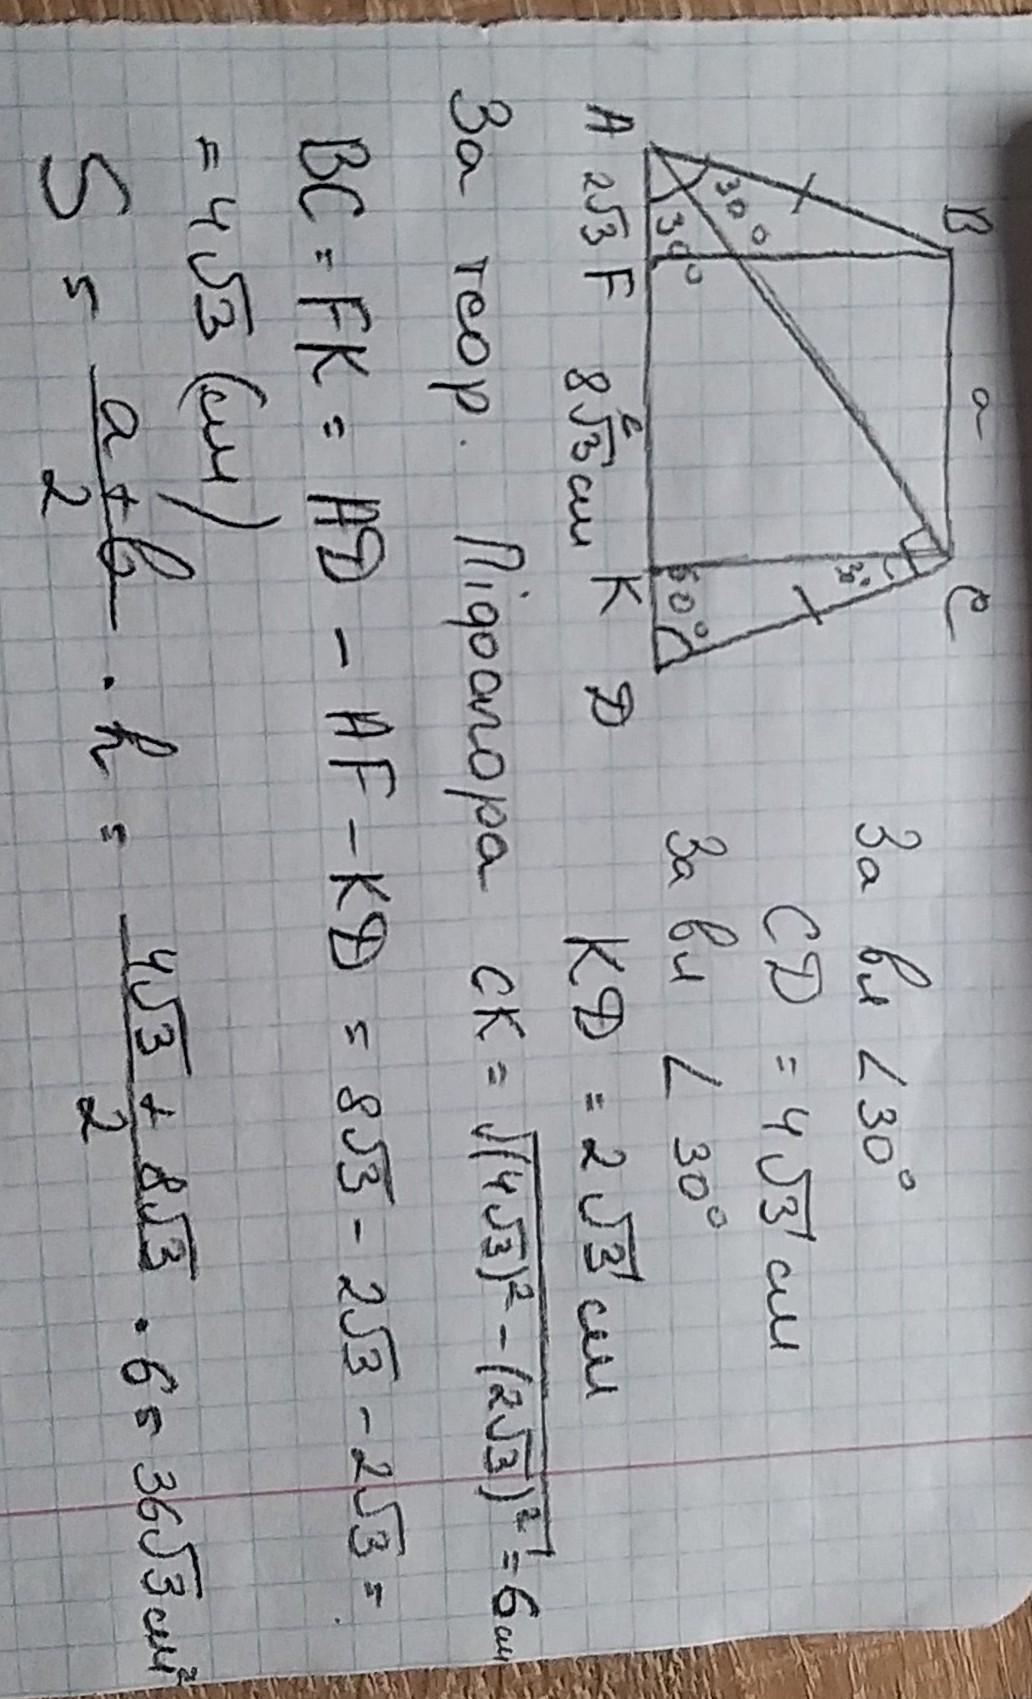 B a C
30°
30°
30°
60°
A 2√3 F 8√3 см K D
За вл ∠30°
CD = 4√3 см
За вл ∠ 30°
KD = 2√3 см
За теор. Піфагора CK = √(4√3)² - (2√3)² = 6 см
BC = FK = AD - AF - KD = 8√3 - 2√3 - 2√3 =
= 4√3 (см)
S = a + b / 2 · h = 4√3 + 8√3 / 2 · 6 = 36√3 см²